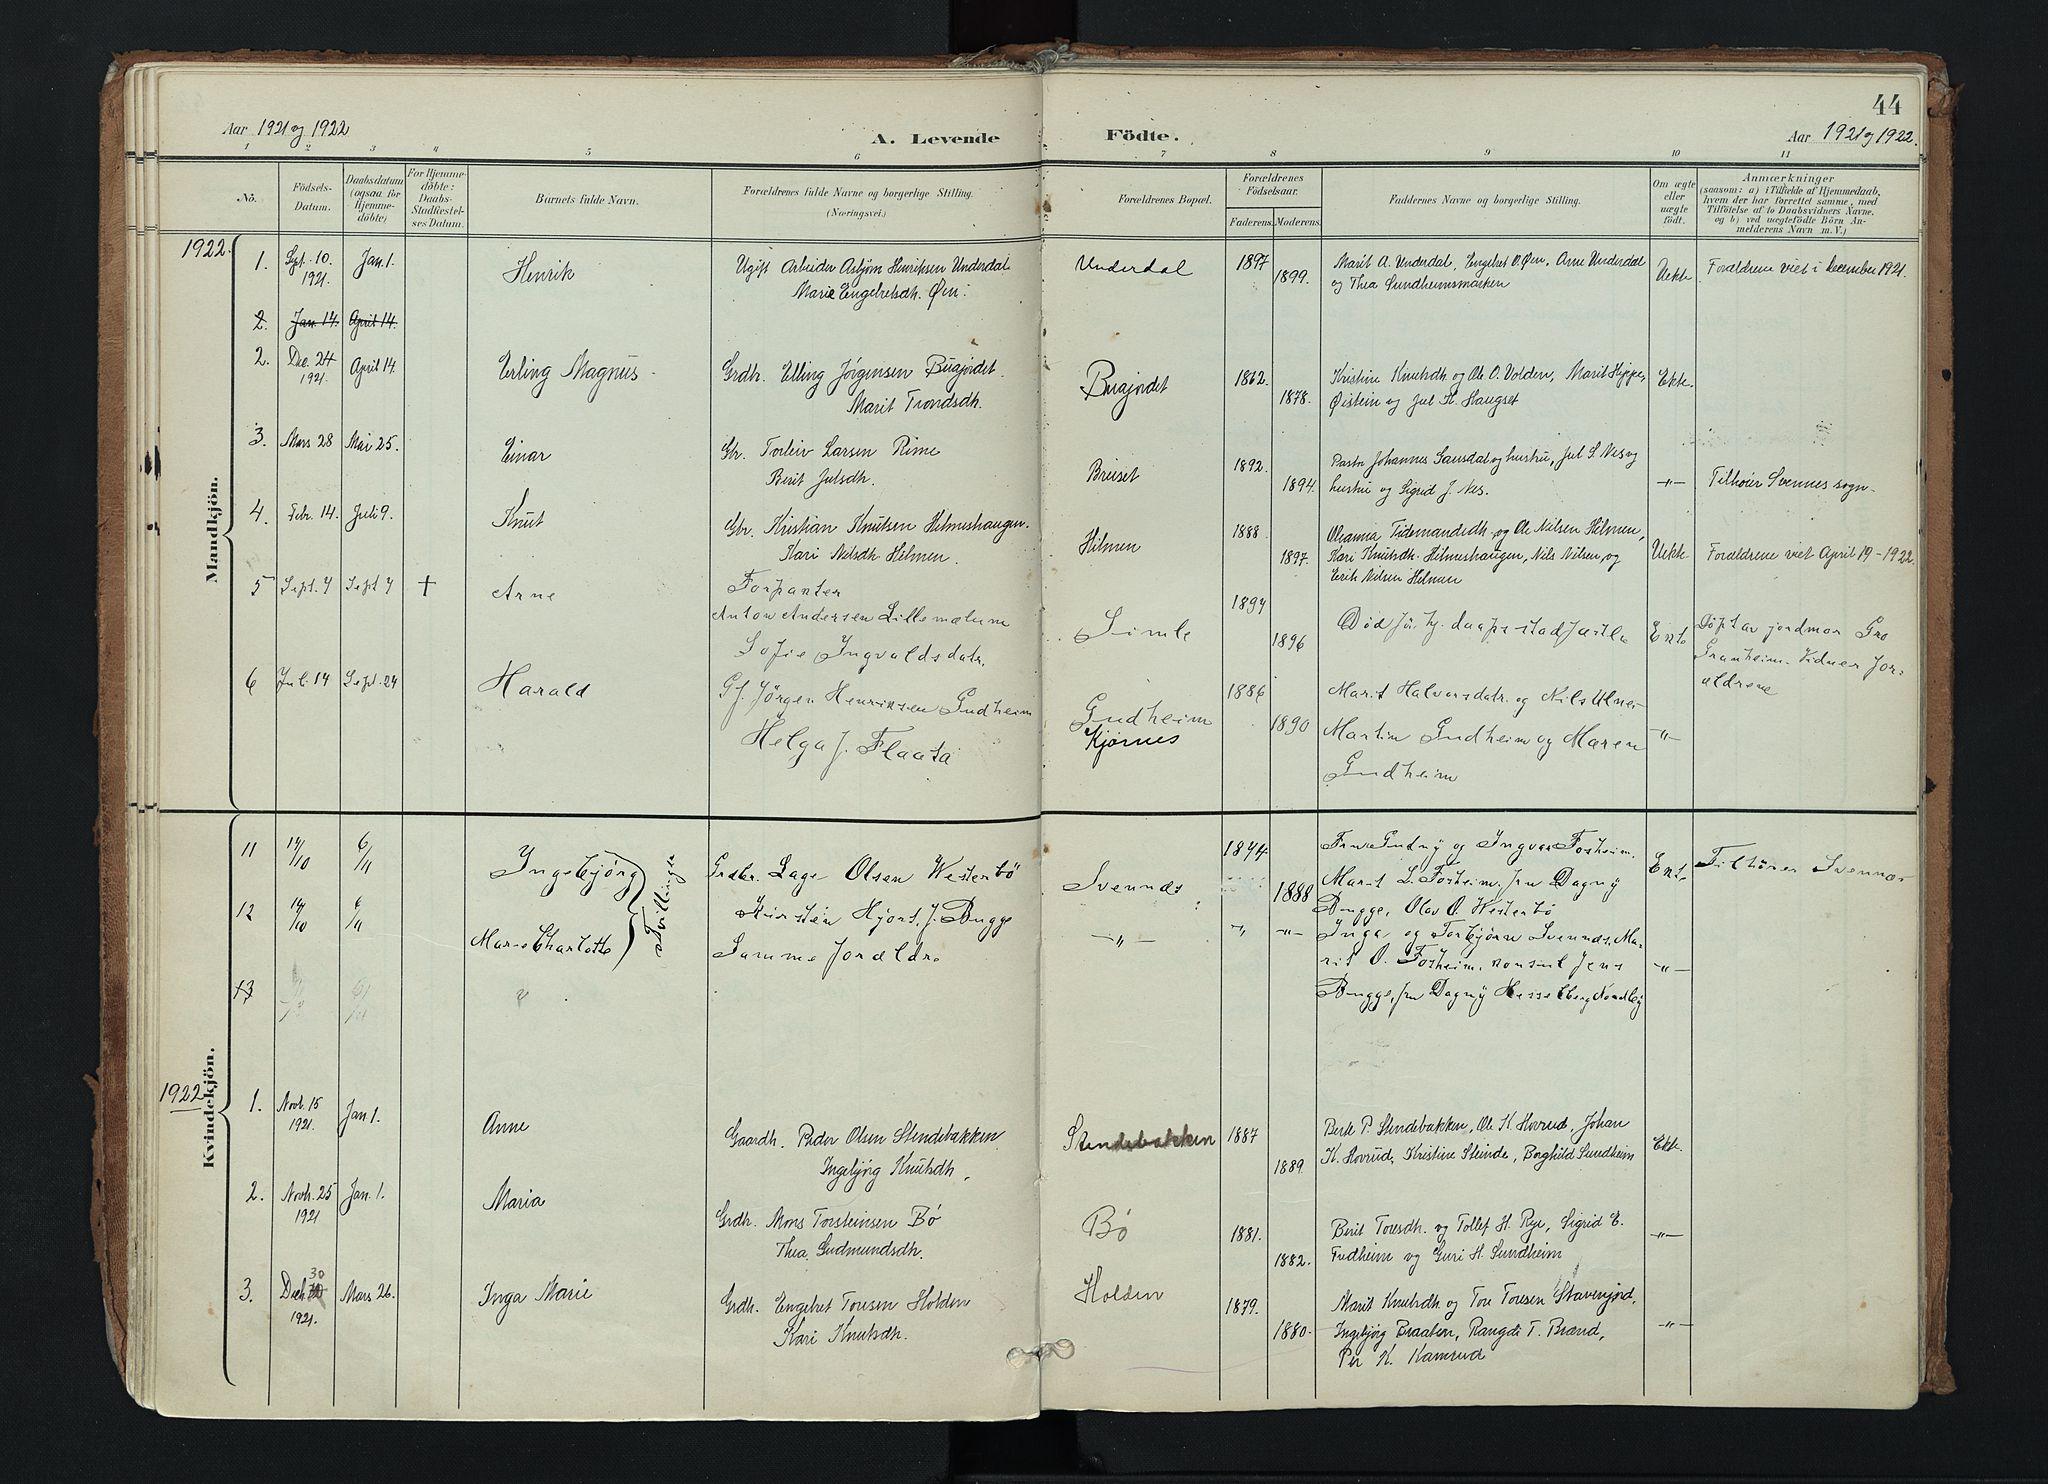 44
Aar 1921 og 1922
A. Levende
Födte.
Aar 1921 og 1922.
1 2 3 4 5 6 7 8 9 10 11
No.
Födsels-
Datum.
Daabsdatum
(ogsaa for
Hjemme-
döbte)
For Hjemme-
döbte:
Daabs-
Stadfæstel-
ses Datum.
Barnets fulde Navn.
Forældrenes fulde Navne og borgerlige Stilling.
(Næringsvei.)
Forældrenes Bopæl.
Forældrenes
Födselsaar.
Faderens. Moderens.
Faddernes Navne og borgerlige Stilling.
Om ægte
eller
uægte
födt.
Anmærkninger
(saasom: a) i Tilfælde af Hjemmedaab,
hvem der har forrettet samme, med
Tilföielse af to Daabsvidners Navne,
og b) ved uægtefödte Börn An-
melderens Navn m.V.)
Mandkjön.
1922.
1. Sept. 10. 1921. Jan. 1. Henrik
Ugift Arbeider Asbjørn Henriksen Underdal
Marie Engebretsdh. Øen.
Underdal 1897 1899.
Marit A. Underdal, Engebret O. Øen, Arne Underdal
og Thea Sundheimsmarken
Uekte Forældrene viet i december 1921.
2. Jan. 14. April 14.
2. Dec. 24 1921. April 14. Erling Magnus
Grdbr. Elling Jørgensen Bugjordet.
Marit Trondsdh.
Bugjordet 1862. 1878.
Kristine Knutsdh og Ole O. Volden, Marit Hippe,
Øistein og Jul K. Haugset
Ekte.
3. Mars 28 Mai 25. Einar
Gbr. Torleiv Larsen Rime
Berit Julsdh.
Breiset 1892. 1894.
Pastor Johannes Sausdal og hustru, Jul S. Nes og
hustru og Sigrid J. Nes.
-"- Tilhøier Svennes sogn
4. Febr. 14. Juli 9. Knut
Gbr. Kristian Knutsen Hilmeshaugen.
Kari Nilsdh Hilmen.
Hilmen 1888. 1897.
Oleanna Tidemandsdh og Ole Nilsen Hilmen,
Kari Knutsdh. Hilmeshaugen, Nils Nilsen, og
Erik Nilsen Hilmen
Uekte Forældrene viet April 19 - 1922.
5 Sept. 4 Sept 4 † Arne
Forpanter
Anton Andersen Lillemælum
Sofie Ingvaldsdatr.
Simle 1894 1896
Død før hj. daaps stadfæstla
Ekte
Døpt av jordmor Gro
Granheim. Vidner for-
ældrene
6 Jul. 14 Sept. 24 Harald
Gf. Jörgen Henriksen Gudheim
Helga J. Flaata
Gudheim
Kjørnes
1886 1890
Marit Halvorsdatr. og Nils Ulnes
Martin Gudheim og Maren
Gudheim
-"-
Kvindekjön.
11 14/10 6/11 Ingebjörg
Grdbr. Lage Olsen Westerbö
Kirsten Hjort, f. Bugge
Svennæs 1874 1888
Fru Gudny og Ingvar Fosheim.
Marit L. Fosheim, fru Dagny
Bugge, Olav O. Westerbö
Ekt. Tilhörer Svennæs
12 14/10 6/11 Marie Charlotte
Tvillinger
Samme forældre
-"- -"- -"-
Inga og Torbjörn Svennæs, Ma-
rit O. Fosheim, konsul Jens
Bugge, fru Dagny Hesselberg Nordby
-"-
13
1922
1. Novb. 15 1921. Jan 1. Anne
Gaardbr. Peder Olsen Stendebakken
Ingebjörg Knutsdh.
Stendebakken 1887 1889.
Berte P. Stendebakken, Ole K. Hovrud, Johan
K. Hovrud, Kristine Steinde, Borghild Sundheim
Ekte.
2. Novb. 25 1921 Jan. 1. Maria
Grdb. Mons Torsteinsen Bø
Thea Gudmundsdh.
Bø 1881. 1882.
Berit Toresdh. og Tollef H. Rye, Sigrid E.
Fudheim og Guri H. Sundheim
-"-
3. Decb 30 1921. Mars 26. Inga Marie
Grdb. Engebret Toresen Holden
Kari Knutsdh.
Holden 1879. 1880.
Marit Knutsdh og Tore Toresen Stavenjord,
Ingebjörg Braaten, Rangdi T. Brænd,
Per K. Kamrud
-"-